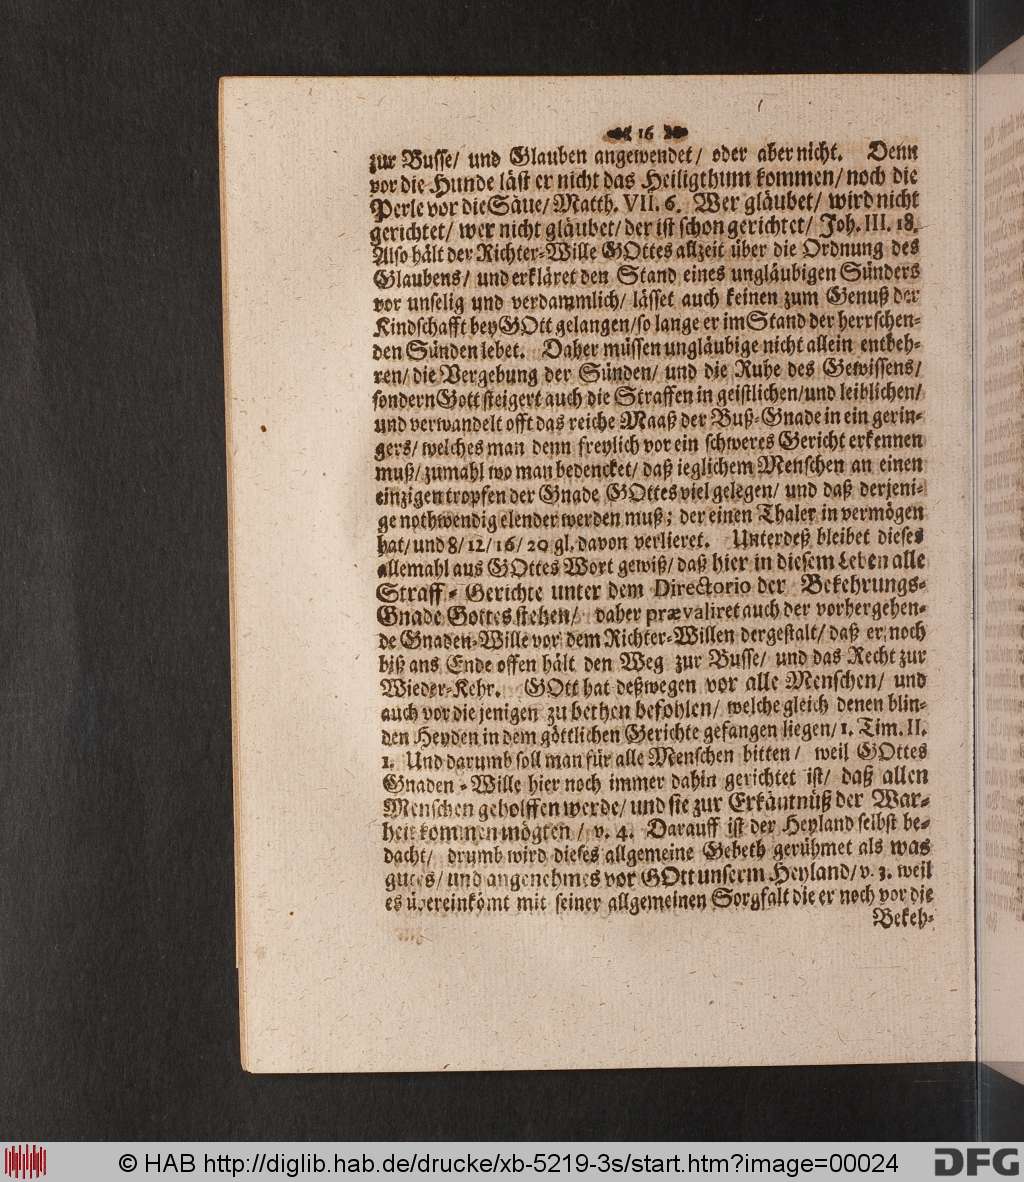 16
zur Busse/ und Glauben angewendet/ oder aber nicht. Denn
vor die Hunde läst er nicht das Heiligthum kommen/ noch die
Perle vor die Säue/ Matth. VII. 6. Wer gläubet/ wird nicht
gerichtet/ wer nicht gläubet/ der ist schon gerichtet/ Joh. III. 18.
Also hält der Richter-Wille GOttes allzeit über die Ordnung des
Glaubens/ und erkläret den Stand eines ungläubigen Sünders
vor unselig und verdammlich/ lässet auch keinen zum Genuß der
Kindschafft bey GOtt gelangen/ so lange er im Stand der herrschen-
den Sünden lebet. Daher müssen ungläubige nicht allein entbeh-
ren/ die Vergebung der Sünden/ und die Ruhe des Gewissens/
sondern Gott steigert auch die Straffen in geistlichen/ und leiblichen/
und verwandelt offt das reiche Maaß der Buß-Gnade in ein gerin-
gers/ welches man denn freylich vor ein schweres Gericht erkennen
muß/ zumahl wo man bedencket/ daß ieglichem Menschen an einen
einzigen tropfen der Gnade GOttes viel gelegen/ und daß derjeni-
ge nothwendig elender werden muß; der einen Thaler in vermögen
hat/ und 8/ 12/ 16/ 20 gl. davon verlieret. Unterdeß bleibet dieses
allemahl aus GOttes Wort gewiß/ daß hier in diesem Leben alle
Straff-Gerichte unter dem Directorio der Bekehrungs-
Gnade Gottes stehen/ daher prævaliret auch der vorhergehen-
de Gnaden-Wille vor dem Richter-Willen dergestalt/ daß er noch
biß ans Ende offen hält den Weg zur Busse/ und das Recht zur
Wieder-Kehr. GOtt hat deßwegen vor alle Menschen/ und
auch vor die jenigen zu bethen befohlen/ welche gleich denen blin-
den Heyden in dem göttlichen Gerichte gefangen liegen/ 1. Tim. II.
1. Und darumb soll man für alle Menschen bitten/ weil GOttes
Gnaden-Wille hier noch immer dahin gerichtet ist/ daß allen
Menschen geholffen werde/ und sie zur Erkäntnüß der War-
heit kommen mögten/ v. 4. Darauff ist der Heyland selbst be-
dacht/ drumb wird dieses allgemeine Gebeth gerühmet als was
gutes/ und angenehmes vor GOtt unserm Heyland/ v. 3. weil
es übereinkömt mit seiner allgemeinen Sorgfalt die er noch vor die
Bekeh-
© HAB http://diglib.hab.de/drucke/xb-5219-3s/start.htm?image=00024
DFG